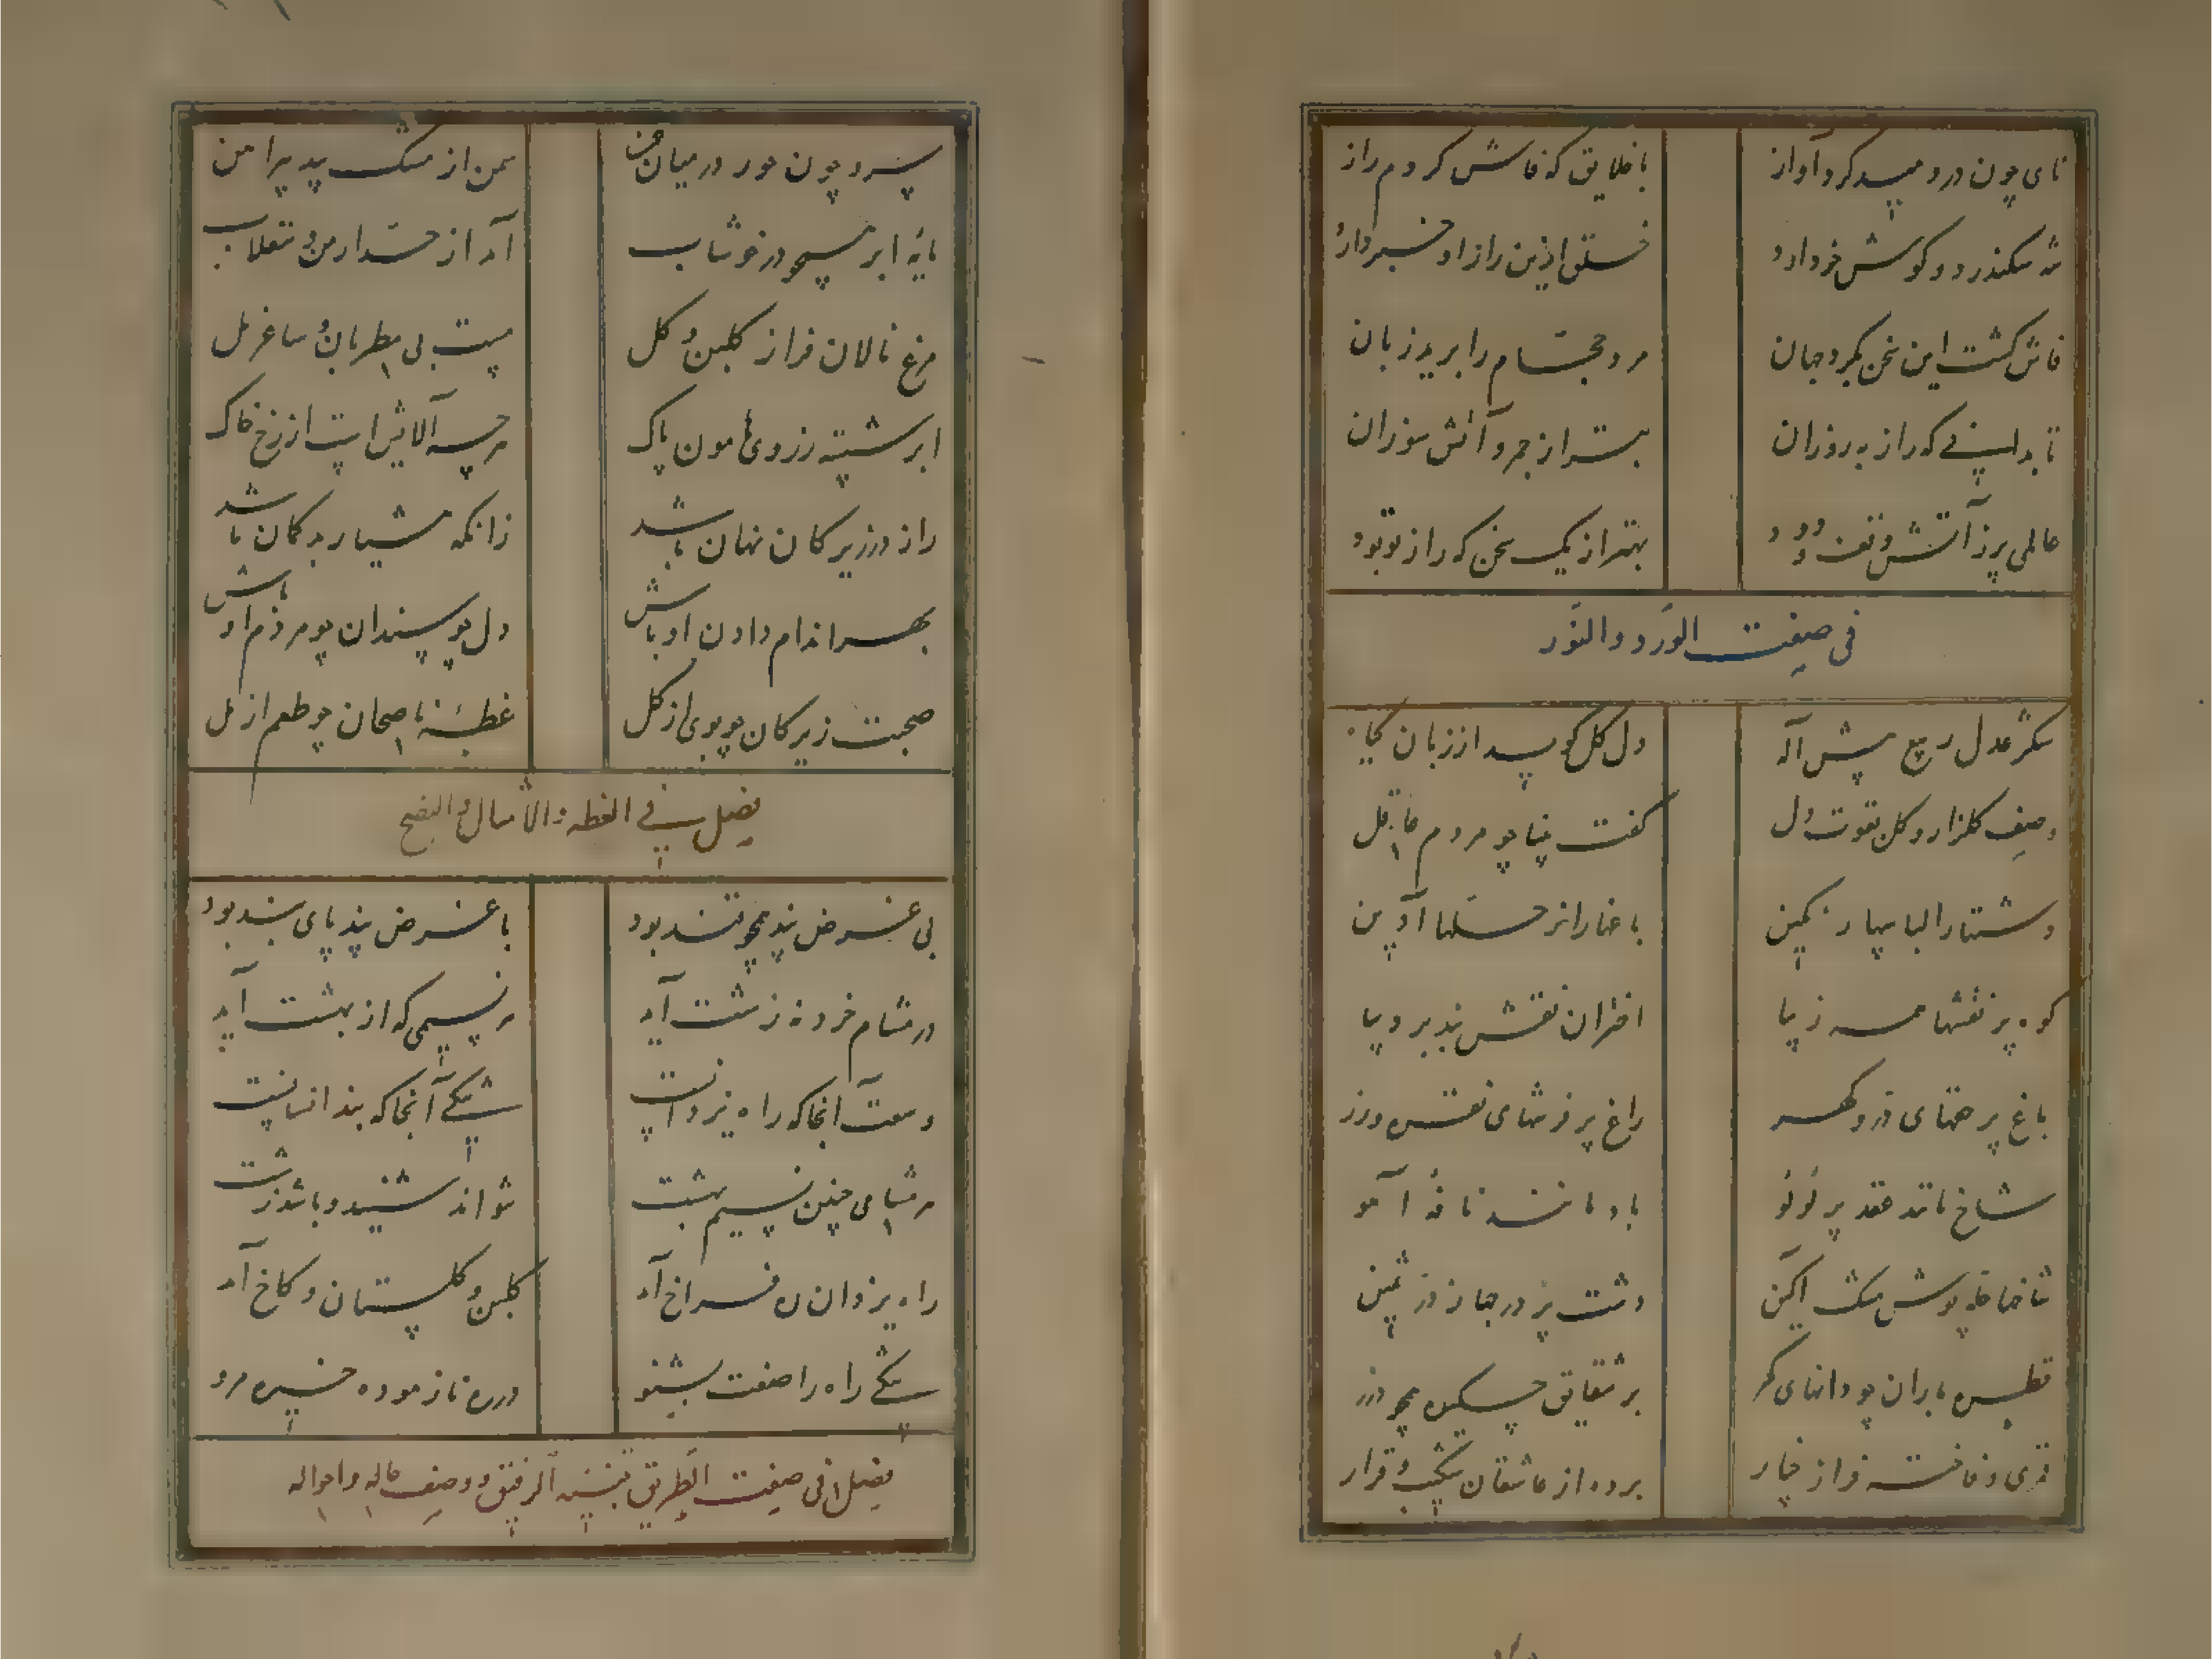 نای چون دردمید کرد آواز
با خلایق که فاش کردم راز
شه سکندر دو گوش خر دارد
خلق ازین راز او خبر دارد
فاش گشت این سخن بگرد جهان
مرد حجام را برید زبان
تا بدانی که راز بهروزان
بتر از جمر و آتش سوزان
عالمی پر ز آتش و تف و دود
بهتر از یک سخن که راز تو بود
فی صفت الورد والنور
شکر عدل ربیع پیش اله
دل گل گوید از زبان گیاه
وصف گلزار و گل بقوت دل
گفت بینا چو مردم عاقل
دشتها را لباسها رنگین
باغها را ز حله‌ها آذین
کوه پر نقشها همه زیبا
اختران نقش‌بند بر دیبا
باغ پر تختهای در و گهر
راغ پر فرشهای نقش و درر
شاخ مانند عقد پر لولو
باد مانند نافه آهو
شاخها حله پوش مشک آگین
دشت پر درجها ز در ثمین
قطره باران چو دانهای گهر
بر شقایق چکیده همچو درر
قمری و فاخته فراز چنار
برده از عاشقان شکیب و قرار
سرو چون حور در میان چمن
سمن از مشک بید پیرامن
مایه ابر همچو در خوشاب
مرغ نالان فراز گلبن و گل
مست بی مطربان و ساغر مل
ابر شسته ز روی هامون پاک
هرچه آلایش است از رخ خاک
راز در زیرکان نهان باشد
زانکه هشیار بد گمان باشد
بهر اندام دادن اوباش
دل چو سندان چو مردم او باش
صحبت زیرکان چو بوی از گل
عظت ناصحان چو طعم از مل
فصل فی العظه والامثال والنصح
بی غرض پند همچو قند بود
با غرض پند پای بند بود
در مشام خرد نه زشت آید
هر نسیمی که از بهشت آید
وسعت آنجا که راه یزدانست
تنگی آنجا که بند انسانست
هر مشامی چنین نسیم بهشت
نتواند شنید و باشد زشت
راه یزدان ره فراخ آمد
گلبن و گلستان و کاخ آمد
تنگی راه را صفت بشنو
در ره نازموده خیره مرو
فصل فی صفت الطریق بنسبة الرفیق و وصف حاله واحواله